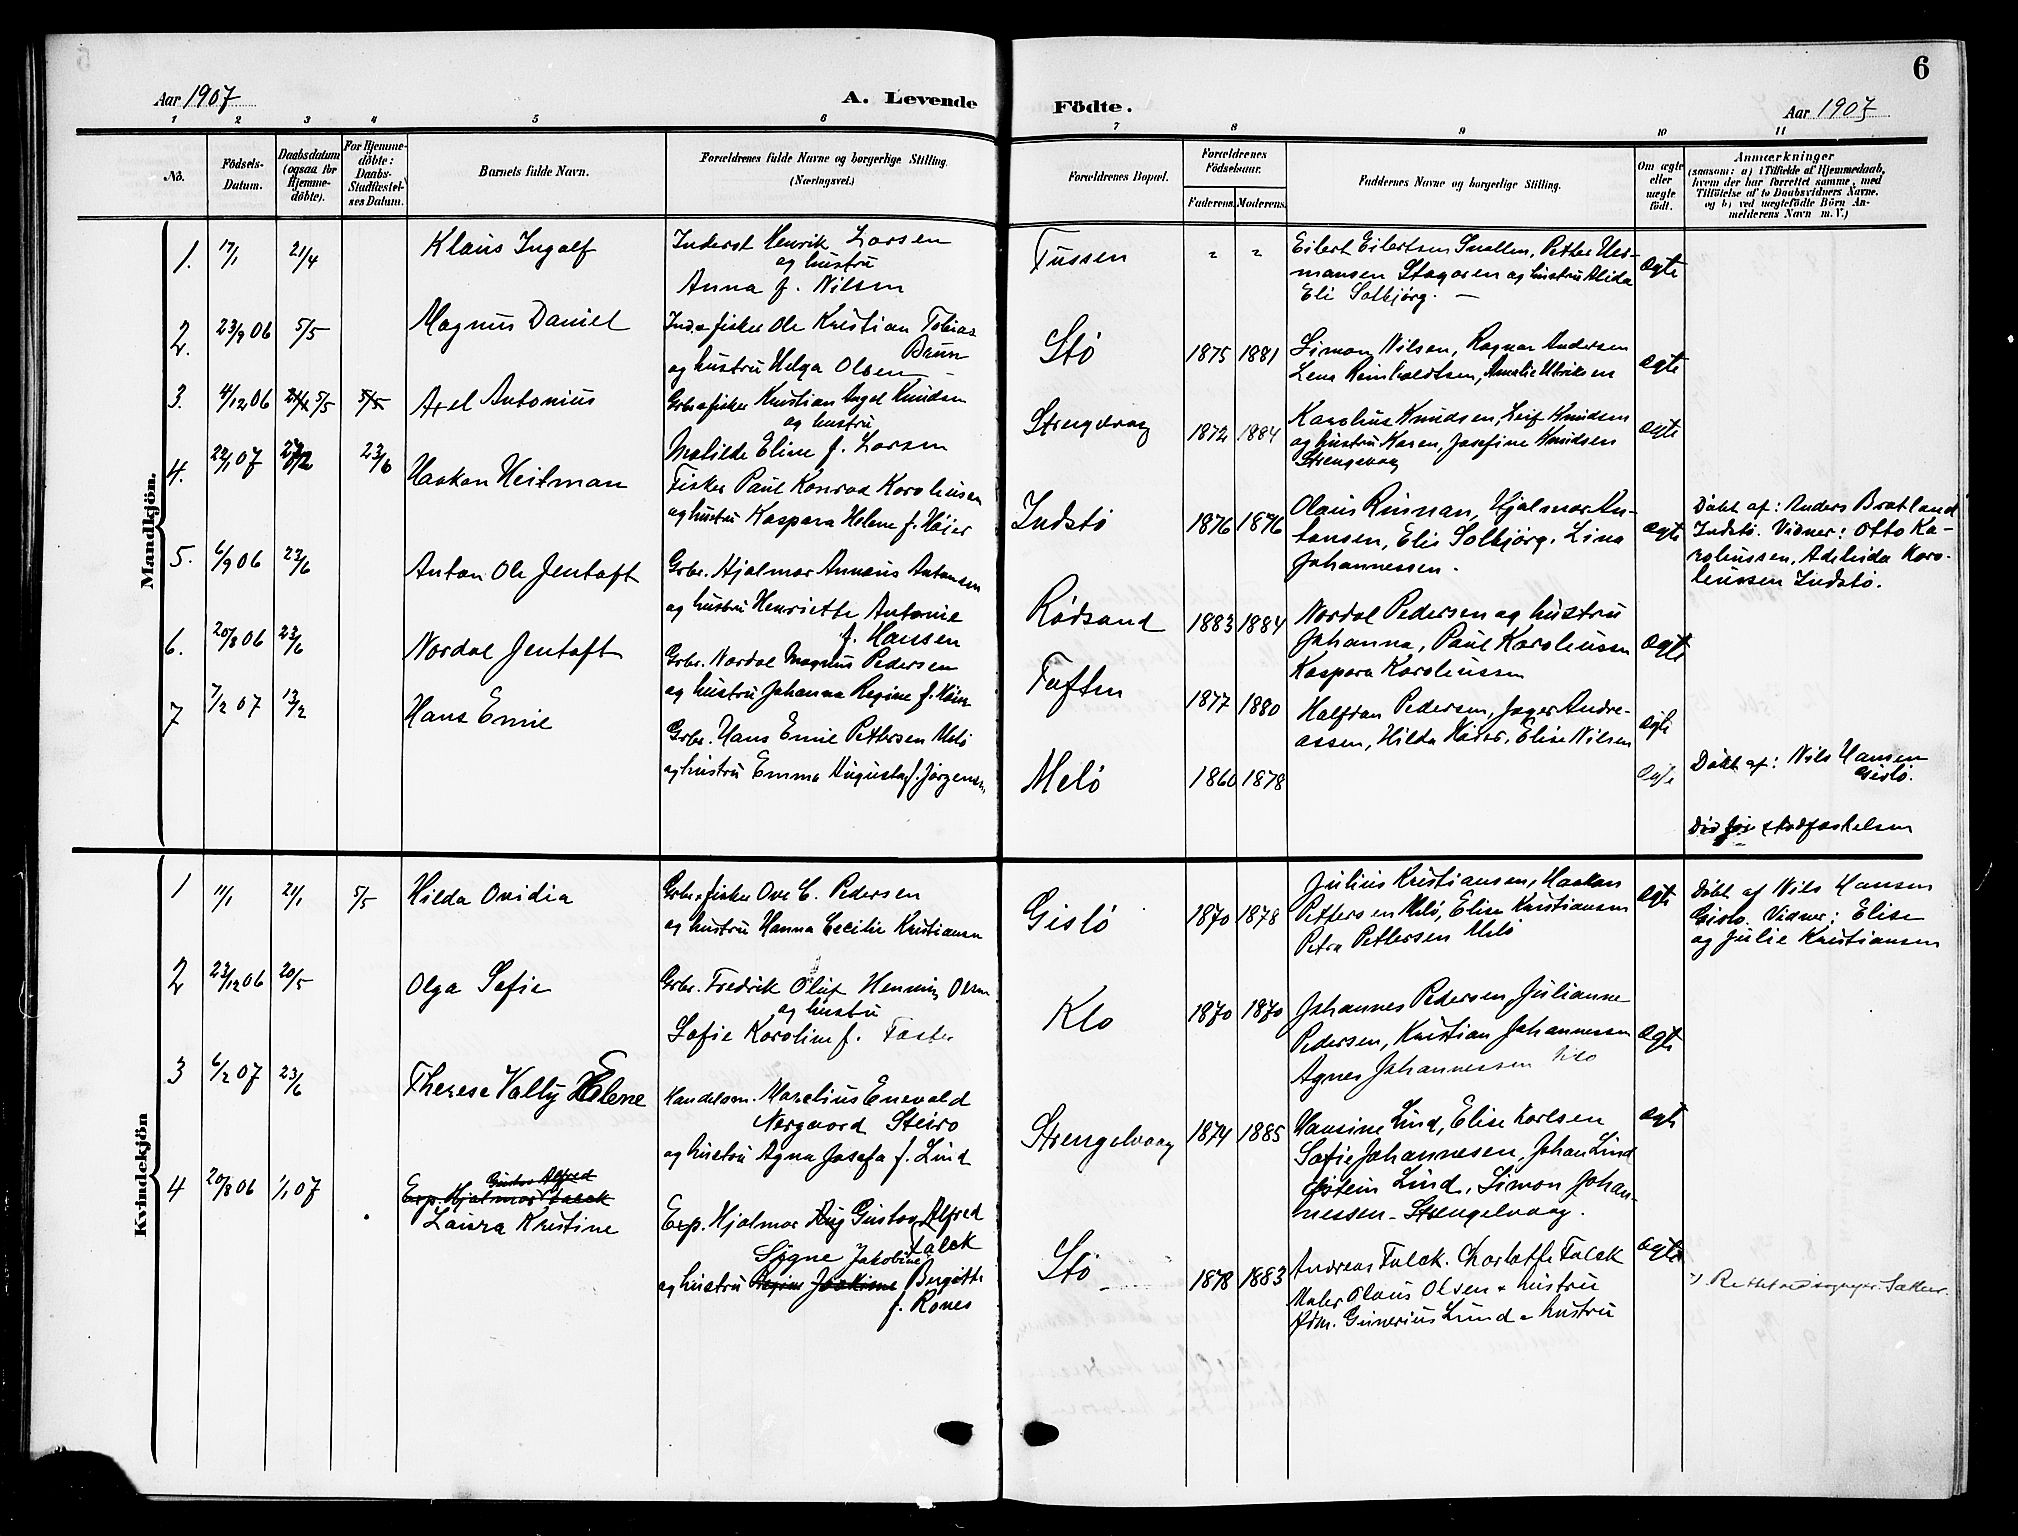 6
Aar 1907
A. Levende
Födte.
Aar 1907
1 2 3 4 5 6 7 8 9 10 11
No.
Födsels-
Datum.
Daabsdatum
(ogsaa for
Hjemme-
döbte).
For Hjemme-
döbte:
Daabs-
Stadfæstel-
ses Datum.
Barnets fulde Navn.
Forældrenes fulde Navne og borgerlige Stilling.
(Næringsvei.)
Forældrenes Bopæl.
Forældrenes
Födselsaar.
Faderens. Moderens.
Faddernes Navne og borgerlige Stilling.
Om ægte
eller
uægte
födt.
Anmærkninger
(saasom: a) i Tilfælde af Hjemmedaab,
hvem der har forrettet samme, med
Tilföielse af to Daabsvidners Navne.
og b) ved uægtefödte Börn An-
melderens Navn m. V.)
Mandkjön.
1. 17/1 21/4 Klaus Ingolf
Inderst Henrik Larsen
og hustru
Anna f. Nilsen
Tussen
Eilert Eilertsen Snellen, Petter Her-
mansen Stagoren og hustru Alida
Eli Solbjörg. —
ægte
2. 23/9 06 5/5 Magnus Daniel
Ind. & fisker Ole Kristian Tobias
Bruun
og hustru Helga Olsen —
Stø
1875 1881
Simon Nilsen, Ragnar Andersen
Lena Reinholdtsen, Amalie Ulriksen
ægte
3. 4/12 06 5/5 5/5 Axel Antonius
Grbr & fisker Kristian Angel Knudsen
og hustru
Matilde Eline f. Larsen
Strengelvaag
1872 1884
Karolius Knudsen, Leif Knudsen
og hustru Maren, Josefine Knudsen
Strengevaag
ægte
4. 22/1 07 23/6 Haakon Heitman
Fisker Paul Konrad Karoliusen
og hustru Kaspara Helene f. Høier
Indstø
1876 1876
Olaus Rinnan, Hjalmar An-
tonsen, Elis Solbjörg, Lina
Johannessen.
ægte
Døbt af: Anders Bratland
Indstø. Vidner: Otto Ka-
roliussen, Adelida Karo-
liussen Indstø.
5. 6/9 06 23/6 Anton Ole Jentoft
Grbr. Hjalmar Annæus Antonsen
og hustru Henriette Antonie
f. Hansen
Rødsand
1883 1884
Nordal Pedersen og hustru
Johanna, Paul Karoliussen
Kaspara Karoliussen
ægte
6. 20/8 06 23/6 Nordal Jentoft
Grbr. Nordal Magnus Pedersen
og hustru Johanna Regine f. Høier
Toften
1877 1880
Halfdan Pedersen, Jager Andre-
assen, Hilda Høier, Elise Nilsen
ægte
7 7/2 07 13/2 Hans Emil
Grbr. Hans Emil Pettersen Melø
og hustru Emma Augusta f. Jørgensen
Melø
1860 1878
ægte
Døbt af: Nils Hansen
Gislø.
Død før stadfæstelsen
Kvindekjön
1 11/1 21/1 5/5 Hilda Ovidia
Grbr & fisker Ove C. Pedersen
og hustru Hanna Cecilie Kristiansen
Gislø
1870 1878
Julius Kristiansen, Haakon
Pettersen Melø, Elise Kristiansen
Petra Pettersen Melø
ægte
Døbt af Nils Hansen
Gislø. Vidner: Elise
og Julie Kristiansen
2 23/12 06 20/5 Olga Sofie
Grbr. Fredrik Oluf Henning Olsen
og hustru
Sofie Karoline f. Foster
Klo
1870 1870
Johannes Pedersen, Julianne
Pedersen, Kristian Johannessen
Agnes Johannessen Klo
ægte
3 6/2 07 23/6 Therese Vally Helene
Handelsm. Marelius Enevald
Nørgaard Steiro
og hustru Agna Josefa f. Lind
Strengelvaag
1874 1885
Hansine Lind, Elise Karlsen
Sofie Johannesen, Johan Lind
Eystein Lind, Simon Johan-
nessen - Strengelvaag.
ægte
4 20/8 06 1/1 07 Gustav Alfred
Exp. Hjalmar Falck
Laura Kristine
Exp. Hjalmar Aug Gustav Alfred
Falck
Signe Jakobine
og hustru Regine Joakime Bergitte
f. Rønes
Stø
1878 1883
Andreas Falck. Charlotte Falck
Maler Olaus Olsen & hustru
Adm. Gunerius Lund & hustru
ægte